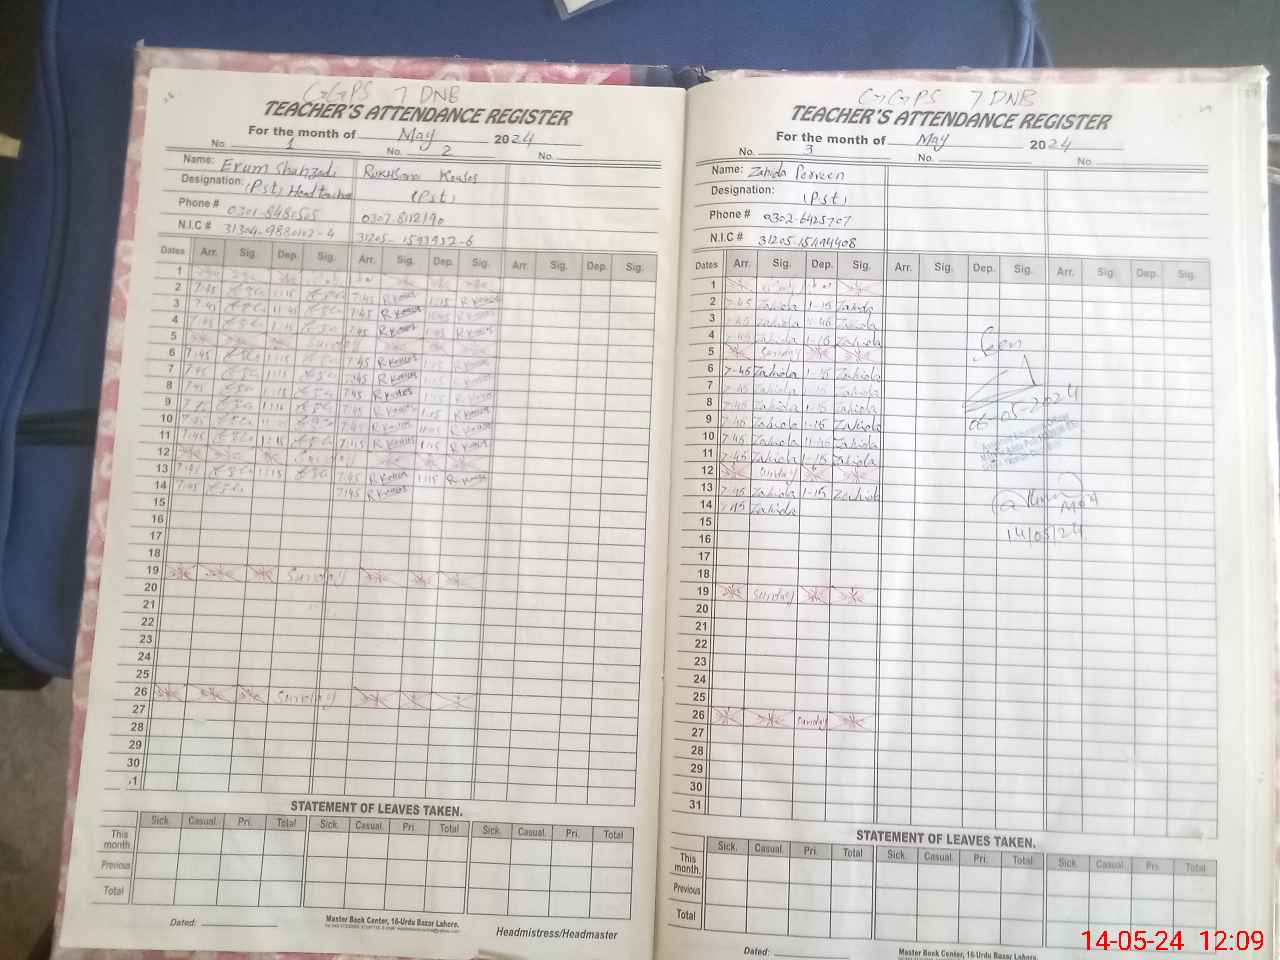 GGPS 7 DNB
TEACHER'S ATTENDANCE REGISTER
For the month of May 2024
No. 1 No. 2 No.
Name: Erum Shahzadi Rukhsana Kousar
Designation: (Pst) Head teacher (Pst)
Phone # 0301-8480505 0307-8112190
N.I.C #
Dates Arr. Sig. Dep. Sig. Arr. Sig. Dep. Sig. Arr. Sig. Dep. Sig.
1
2 7:45 1:15 7:45 R.Kousar 1:15 R.Kousar
3 7:45 11:45 7:45 R.Kousar R.Kousar
4 7:45 1:15 7:45 R.Kousar R.Kousar
5 Sunday
6 7:45 1:15 7:45 R.Kousar 1:15 R.Kousar
7 7:45 1:15 7:45 R.Kousar 1:15 R.Kousar
8 7:45 1:15 7:45 R.Kousar 1:15 R.Kousar
9 1:15 7:45 R.Kousar 1:15 R.Kousar
10 7:45 7:45 R.Kousar R.Kousar
11 7:45 7:45 R.Kousar 1:15 R.Kousar
12 Sunday
13 7:45 1:15 7:45 R.Kousar 1:15 R.Kousar
14 7:45 7:45 R.Kousar
15
16
17
18
19 Sunday
20
21
22
23
24
25
26 Sunday
27
28
29
30
31
STATEMENT OF LEAVES TAKEN.
Sick. Casual. Pri. Total Sick. Casual. Pri. Total Sick. Casual. Pri. Total
This month
Previous
Total
Dated:
Master Book Center, 16-Urdu Bazar Lahore.
Headmistress/Headmaster
GGPS 7 DNB
TEACHER'S ATTENDANCE REGISTER
For the month of May 2024
No. 3 No. No.
Name: Zahida Perveen
Designation: (Pst)
Phone # 0302-6425707
N.I.C #
Dates Arr. Sig. Dep. Sig. Arr. Sig. Dep. Sig. Arr. Sig. Dep. Sig.
1
2 7-45 Zahida 1-15 Zahida
3 7-45 Zahida 11-45 Zahida
4 7-45 Zahida 1-15 Zahida
5 Sunday
6 7-45 Zahida 1-15 Zahida
7 7-45 Zahida 1-15 Zahida
8 7-45 Zahida 1-15 Zahida
9 7-45 Zahida 1-15 Zahida
10 7-45 Zahida 11-45 Zahida
11 7-45 Zahida 1-15 Zahida
12 Sunday
13 7-45 Zahida 1-15 Zahida
14 7-45 Zahida
15
16
17
18
19 Sunday
20
21
22
23
24
25
26 Sunday
27
28
29
30
31
Seen
06-05-2024
14/05/24
STATEMENT OF LEAVES TAKEN.
Sick. Casual. Pri. Total Sick. Casual. Pri. Total Sick. Casual. Pri. Total
This month.
Previous
Total
Dated:
Master Book Center, 16-Urdu Bazar Lahore.
14-05-24 12:09